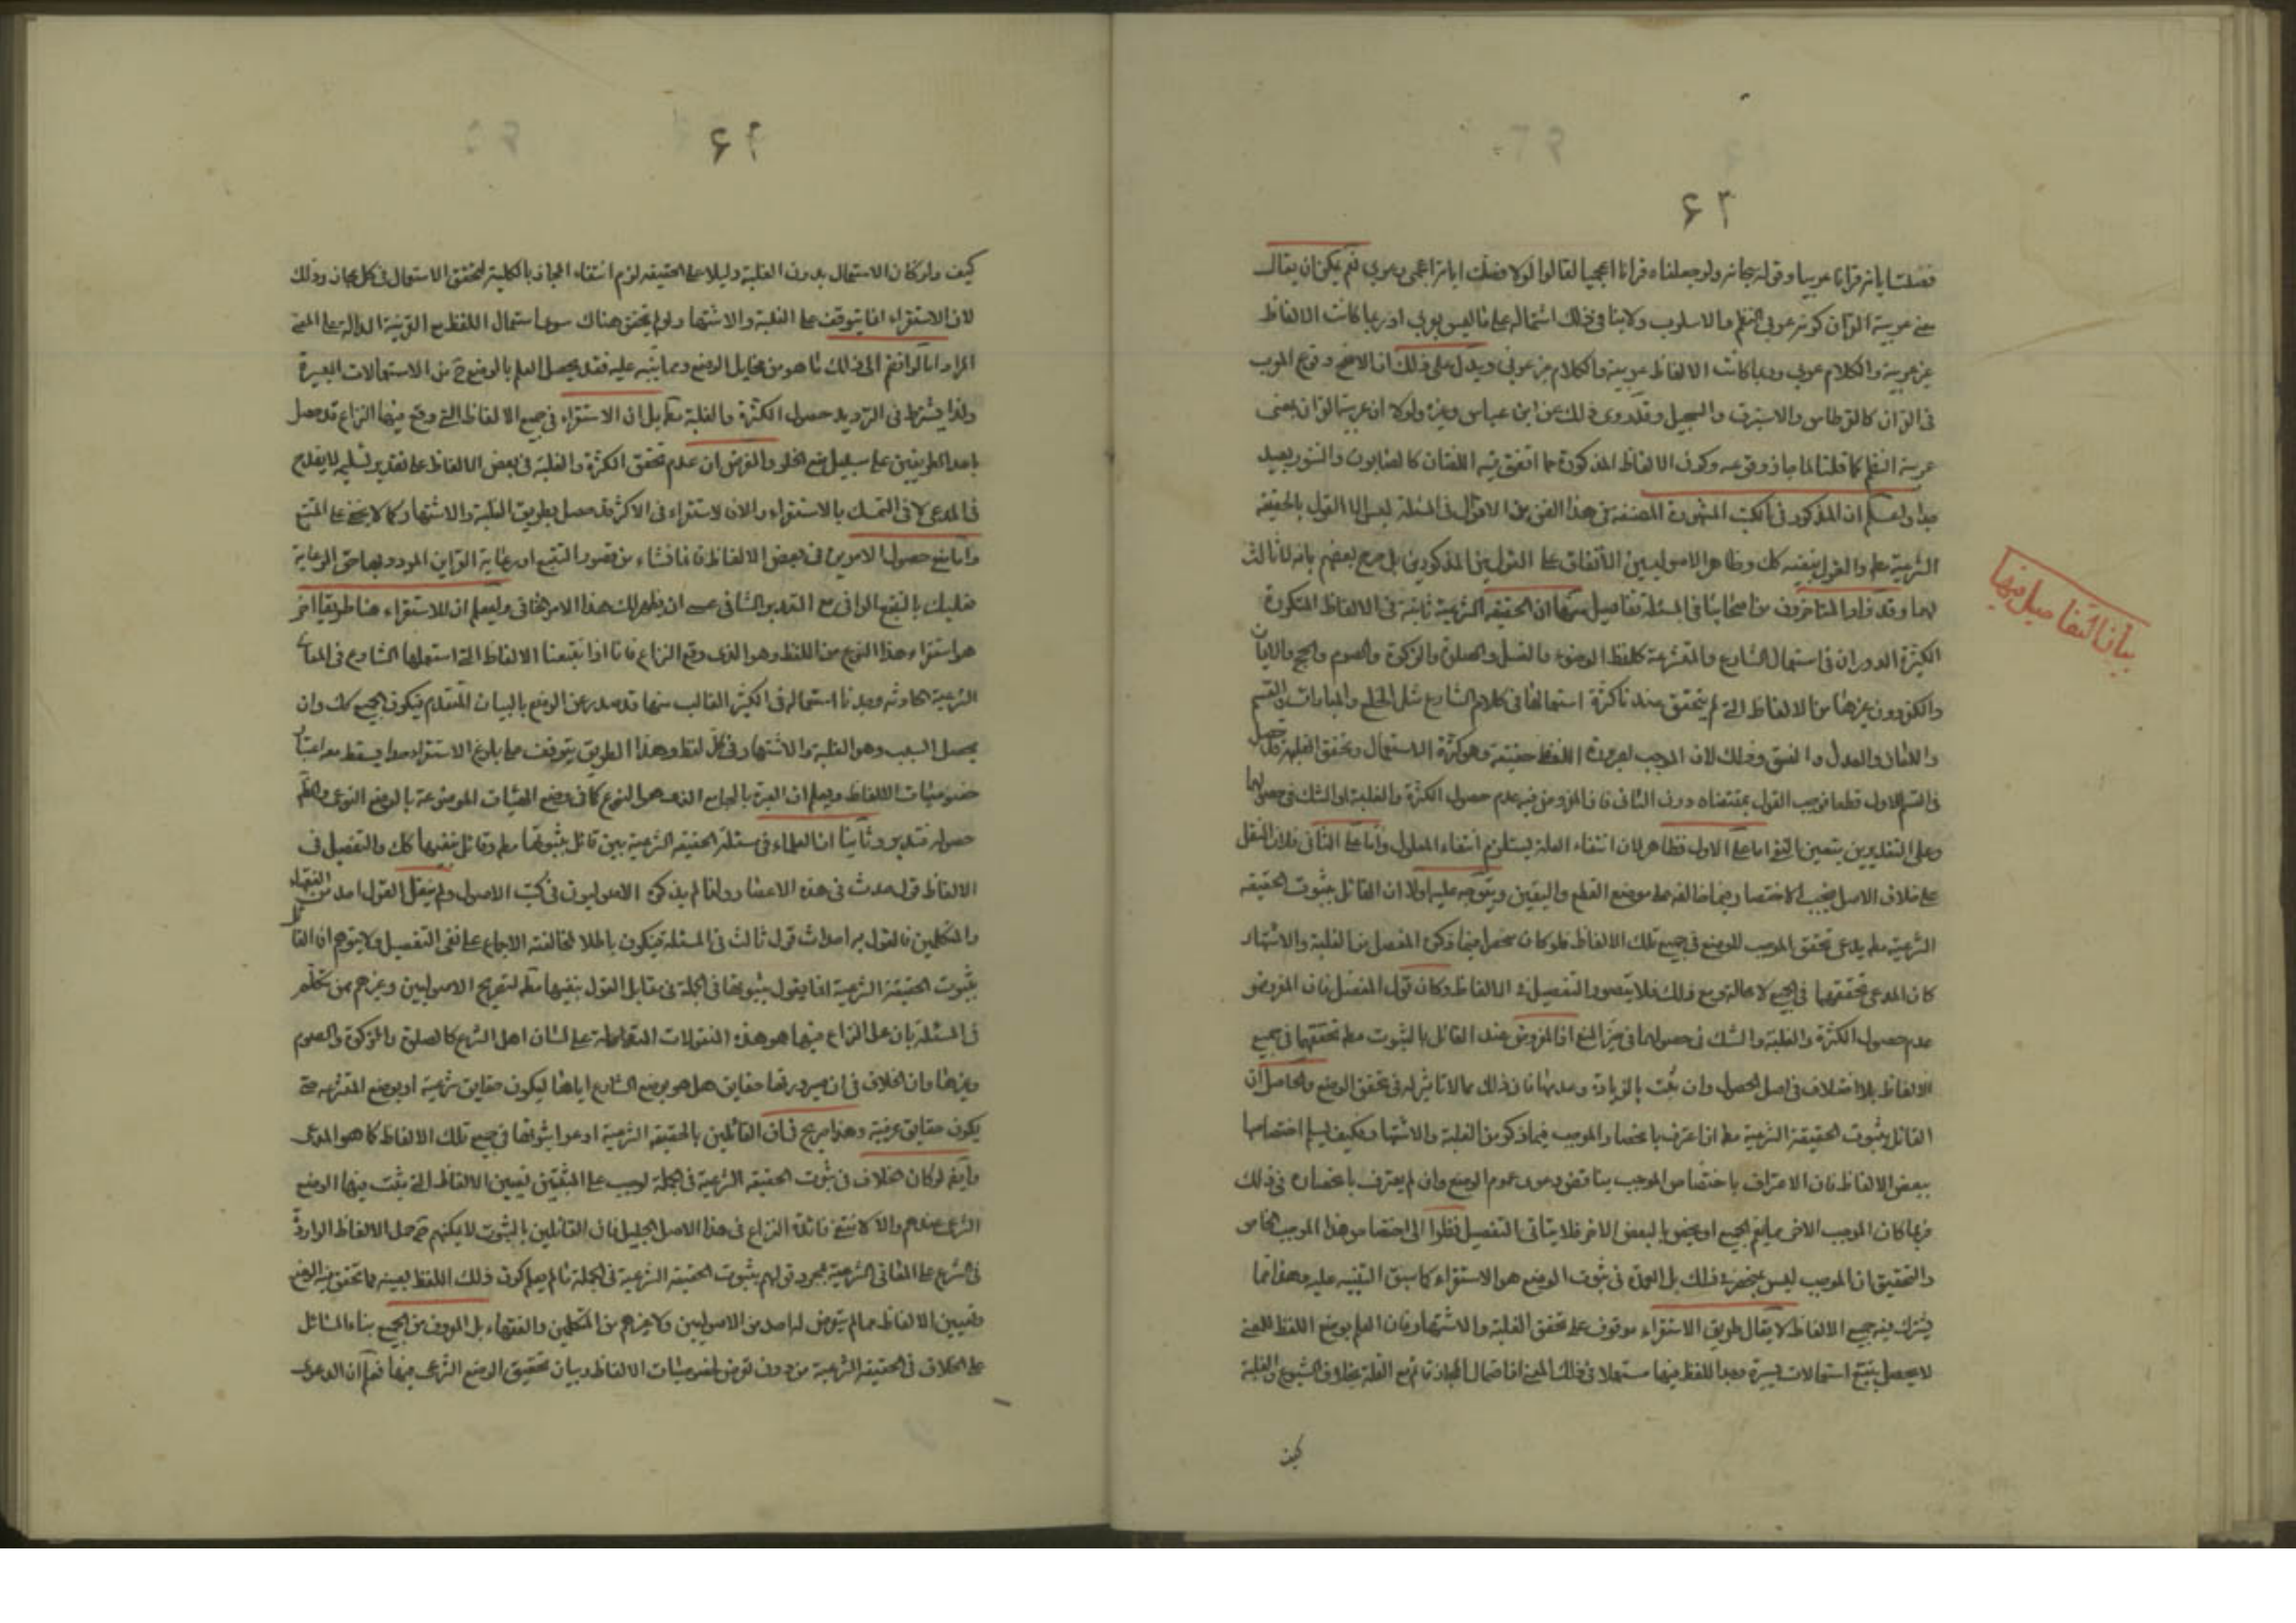 ۶۳
فصلت اياته قرانا عربيا وقوله سبحانه ولو جعلناه قرانا اعجميا لقالوا لولا فصلت اياته اعجمي وعربي نعم يمكن ان يقال
معنى عربية القران كونه عربي النظم والاسلوب ولا ينافي ذلك اشتماله على ما ليس بعربي اذ ربما كانت الالفاظ
غير عربية والكلام عربي وربما كانت الالفاظ عربية والكلام غير عربي ويدل على ذلك ان الاصح وقوع المعرب
في القران كالقسطاس والاستبرق والسجيل وقد روى ذلك عن ابن عباس وغيره ولولا ان عربية القران بمعنى
عربية النظم كما قلنا لما جاز وقوعه وكون الالفاظ المذكورة مما اتفق فيه اللغتان كالصابون والتنور بعيد
جدا واعلم ان المذكور في الكتب المشهورة المصنفة في هذا الفن من الاقوال في المسئلة ليس الا القول بالحقيقة
الشرعية مطم والقول بنفيه كك وظاهر الاصوليين الاتفاق على القولين المذكورين بل صرح بعضهم بانه لا ثالث
لهما وقد زاد المتاخرون من اصحابنا في المسئلة تفاصيل منها ان الحقيقة الشرعية ثابتة في الالفاظ المتكررة
الكثيرة الدوران في استعمال الشارع والمتشرعة كلفظ الوضوء والغسل والصلوة والزكوة والصوم والحج والايمان
والكفر دون غيرها من الالفاظ التي لم يتحقق عندنا كثرة استعمالها في كلام الشارع مثل الخلع والمبارات والقسم
واللعان والعدل والفسق وذلك لان الموجب لصيرورة اللفظ حقيقة وهو كثرة الاستعمال وتحقق الغلبة قد حصل
في القسم الاول قطعا فوجب القول بمقتضاه دون الثاني فان المفروض فيه عدم حصول الكثرة والغلبة او الشك في حصولهما
وعلى التقديرين يتعين النفي اما على الاول فظاهر لان انتفاء العلة يستلزم انتفاء المعلول واما على الثاني فلان النقل
على خلاف الاصل فيجب الاقتصار فيما خالفه على موضع القطع واليقين ويتوجه عليه اولا ان القائل بثبوت الحقيقة
الشرعية مطم يدعي تحقق الموجب للوضع في جميع تلك الالفاظ فلو كان منحصرا فيما ذكره المفصل من الغلبة والاشتهار
كان المدعى تحققهما في الجميع لا محالة ومع ذلك فلا يتصور التفصيل في الالفاظ وكان قول المفصل فان المفروض
عدم حصول الكثرة والغلبة والشك في حصولهما في حيز المنع اذ المفروض عند القائل بالثبوت مطم تحققهما في جميع
الالفاظ بلا اختلاف في اصل الحصول وان ثبت بالزيادة وعدمها فان ذلك مما لا تاثير له في تحقق الوضع والحاصل ان
القائل بثبوت الحقيقة الشرعية مطم ان اعترف بانحصار الموجب فيما ذكر من الغلبة والاشتهار فكيف يسلم اختصاصها
ببعض الالفاظ فان الاعتراف باختصاص الموجب يناقض دعوى عموم الوضع وان لم يعترف بانحصاره في ذلك
فربما كان الموجب الاخر مما يعم الجميع او يختص بالبعض الاخر فلا يتاتى التفصيل نظرا الى اختصاص هذا الموجب الخاص
والتحقيق ان الموجب ليس بمنحصر في ذلك بل العمدة في ثبوت الوضع هو الاستقراء كما سبق التنبيه عليه وهو انما
يشترك فيه جميع الالفاظ لا يقال طريق الاستقراء موقوف على تحقق الغلبة والاشتهار فان العلم بوضع اللفظ للمعنى
لا يحصل بتتبع استعمالات يسيرة وجد اللفظ فيها مستعملا في ذلك المعنى اذ احتمال المجاز قائم مع القلة بخلاف الشيوع والغلبة
كيف
بيان التفاصيل فيها
۶۴
كيف ولو كان الاستعمال بدون الغلبة دليلا على الحقيقة لزم انتفاء المجاز بالكلية لتحقق الاستعمال في كل مجاز وذلك
لان الاستقراء انما يتوقف على الغلبة والاشتهار ولو لم يتحقق هناك سوى استعمال اللفظ مع القرينة الدالة على المعنى
المراد اما لو انضم الى ذلك ما هو من مخايل الوضع ومما ينبه عليه فقد يحصل العلم بالوضع ح من الاستعمالات اليسيرة
ولذا يشترط في الترديد حصول الكثرة والغلبة مطم بل ان الاستقراء في جميع الالفاظ التي وقع فيها النزاع قد حصل
باحد الطريقين على سبيل منع الخلو والغرض ان عدم تحقق الكثرة والغلبة في بعض الالفاظ على تقدير تسليمه لا يقدح
في المدعى لا في التمسك بالاستقراء والا فالاستقراء في الاكثر قد حصل بطريق الغلبة والاشتهار كما لا يخفى على المتتبع
واما منع حصول الامرين في بعض الالفاظ فانما نشاء من قصور التتبع او رعاية القراين الموجودة بها حق الرعاية
فعليك بالتتبع الوافي مع التدبر الشافي عسى ان يظهر لك هذا الامر الخافي وليعلم ان للاستقراء هنا طريقا اخر
هو استقراء هذا النوع من اللفظ وهو الذي وقع النزاع فيه فانا اذا تتبعنا الالفاظ التي استعملها الشارع في المعاني
الشرعية الحادثة وجدنا استعماله في الكثير الغالب منها قد صدر عن الوضع بالبيان المتقدم فيكون الجميع كك وان
يحصل السبب وهو الغلبة والاشتهار في كل لفظ وهذا الطريق يتوقف على بلوغ الاستقراء حدا يسقط معه اعتبار
خصوصيات الالفاظ ويعلم ان العبرة بالجامع الذي هو النوع كما في وضع الهيئات الموضوعة بالوضع النوعي والظم
حصوله فتدبر وثانيا ان العلماء في مسئلة الحقيقة الشرعية بين قائل بثبوتها مطم وقائل بنفيها كك والتفصيل في
الالفاظ قول حدث في هذه الاعصار ولذا لم يذكره الاصوليون في كتب الاصول ولم ينقل القول احد من الفقهاء
والمتكلمين فالقول به احداث قول ثالث في المسئلة فيكون باطلا لمخالفته الاجماع على نفي التفصيل ولا يتوهم ان القائل
بثبوت الحقيقة الشرعية انما يقول بثبوتها في الجملة في مقابل القول بنفيها مطم لتصريح الاصوليين وغيرهم ممن تكلم
في المسئلة بان محل النزاع فيها هو هذه المنقولات المتداولة على لسان اهل الشرع كالصلوة والزكوة والصوم
وغيرها وان الخلاف في ان صيرورتها حقايق هل هو بوضع الشارع اياها ليكون حقايق شرعية او بوضع المتشرعة حتى
يكون حقايق عرفية وهو صريح في ان القائلين بالحقيقة الشرعية ادعوا ثبوتها في جميع تلك الالفاظ كما هو المدعى
وايضا لو كان الخلاف في ثبوت الحقيقة الشرعية في الجملة لوجب على المثبتين تعيين الالفاظ التي يثبت فيها الوضع
الشرعي عندهم والا لانتفى فائدة النزاع في هذا الاصل الجليل فان القائلين بالثبوت لا يمكنهم ح حمل الالفاظ الواردة
في الشرع على المعاني الشرعية بمجرد قولهم بثبوت الحقيقة الشرعية في الجملة ما لم يعلم كون ذلك اللفظ بعينه مما تحقق فيه الوضع
وتعيين الالفاظ مما لم يتعرض له احد من الاصوليين ولا غيرهم من المتكلمين والفقهاء بل المعروف من الجميع بناء المسائل
على الخلاف في الحقيقة الشرعية من دون تعرض لخصوصيات الالفاظ وبيان تحقيق الوضع الشرعي فيها فعلم ان الدعوى